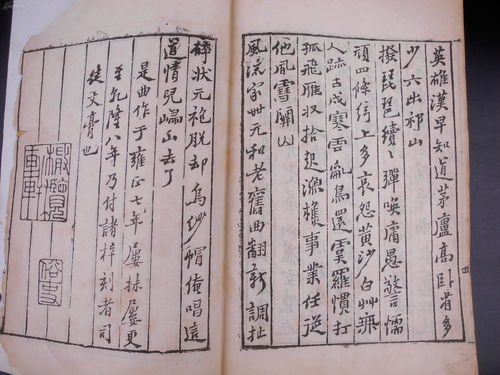 英雄漢早知道茅廬高臥省多
少六出祁山
撥琵琶續〻彈喚庸愚警懦
頑四條絃上多哀怨黃沙白艸無
人跡古戍寒雲亂鳥還虞羅慣打
孤飛雁収拾起漁樵事業任從
他風雪關山
風流家世元和老舊曲翻新調扯
碎狀元袍脫却烏紗帽俺唱這
道情兒歸山去了
是曲作于雍正七年屢抹屢更
至乾隆八年乃付諸梓刻者司
徒文膏也
俗吏